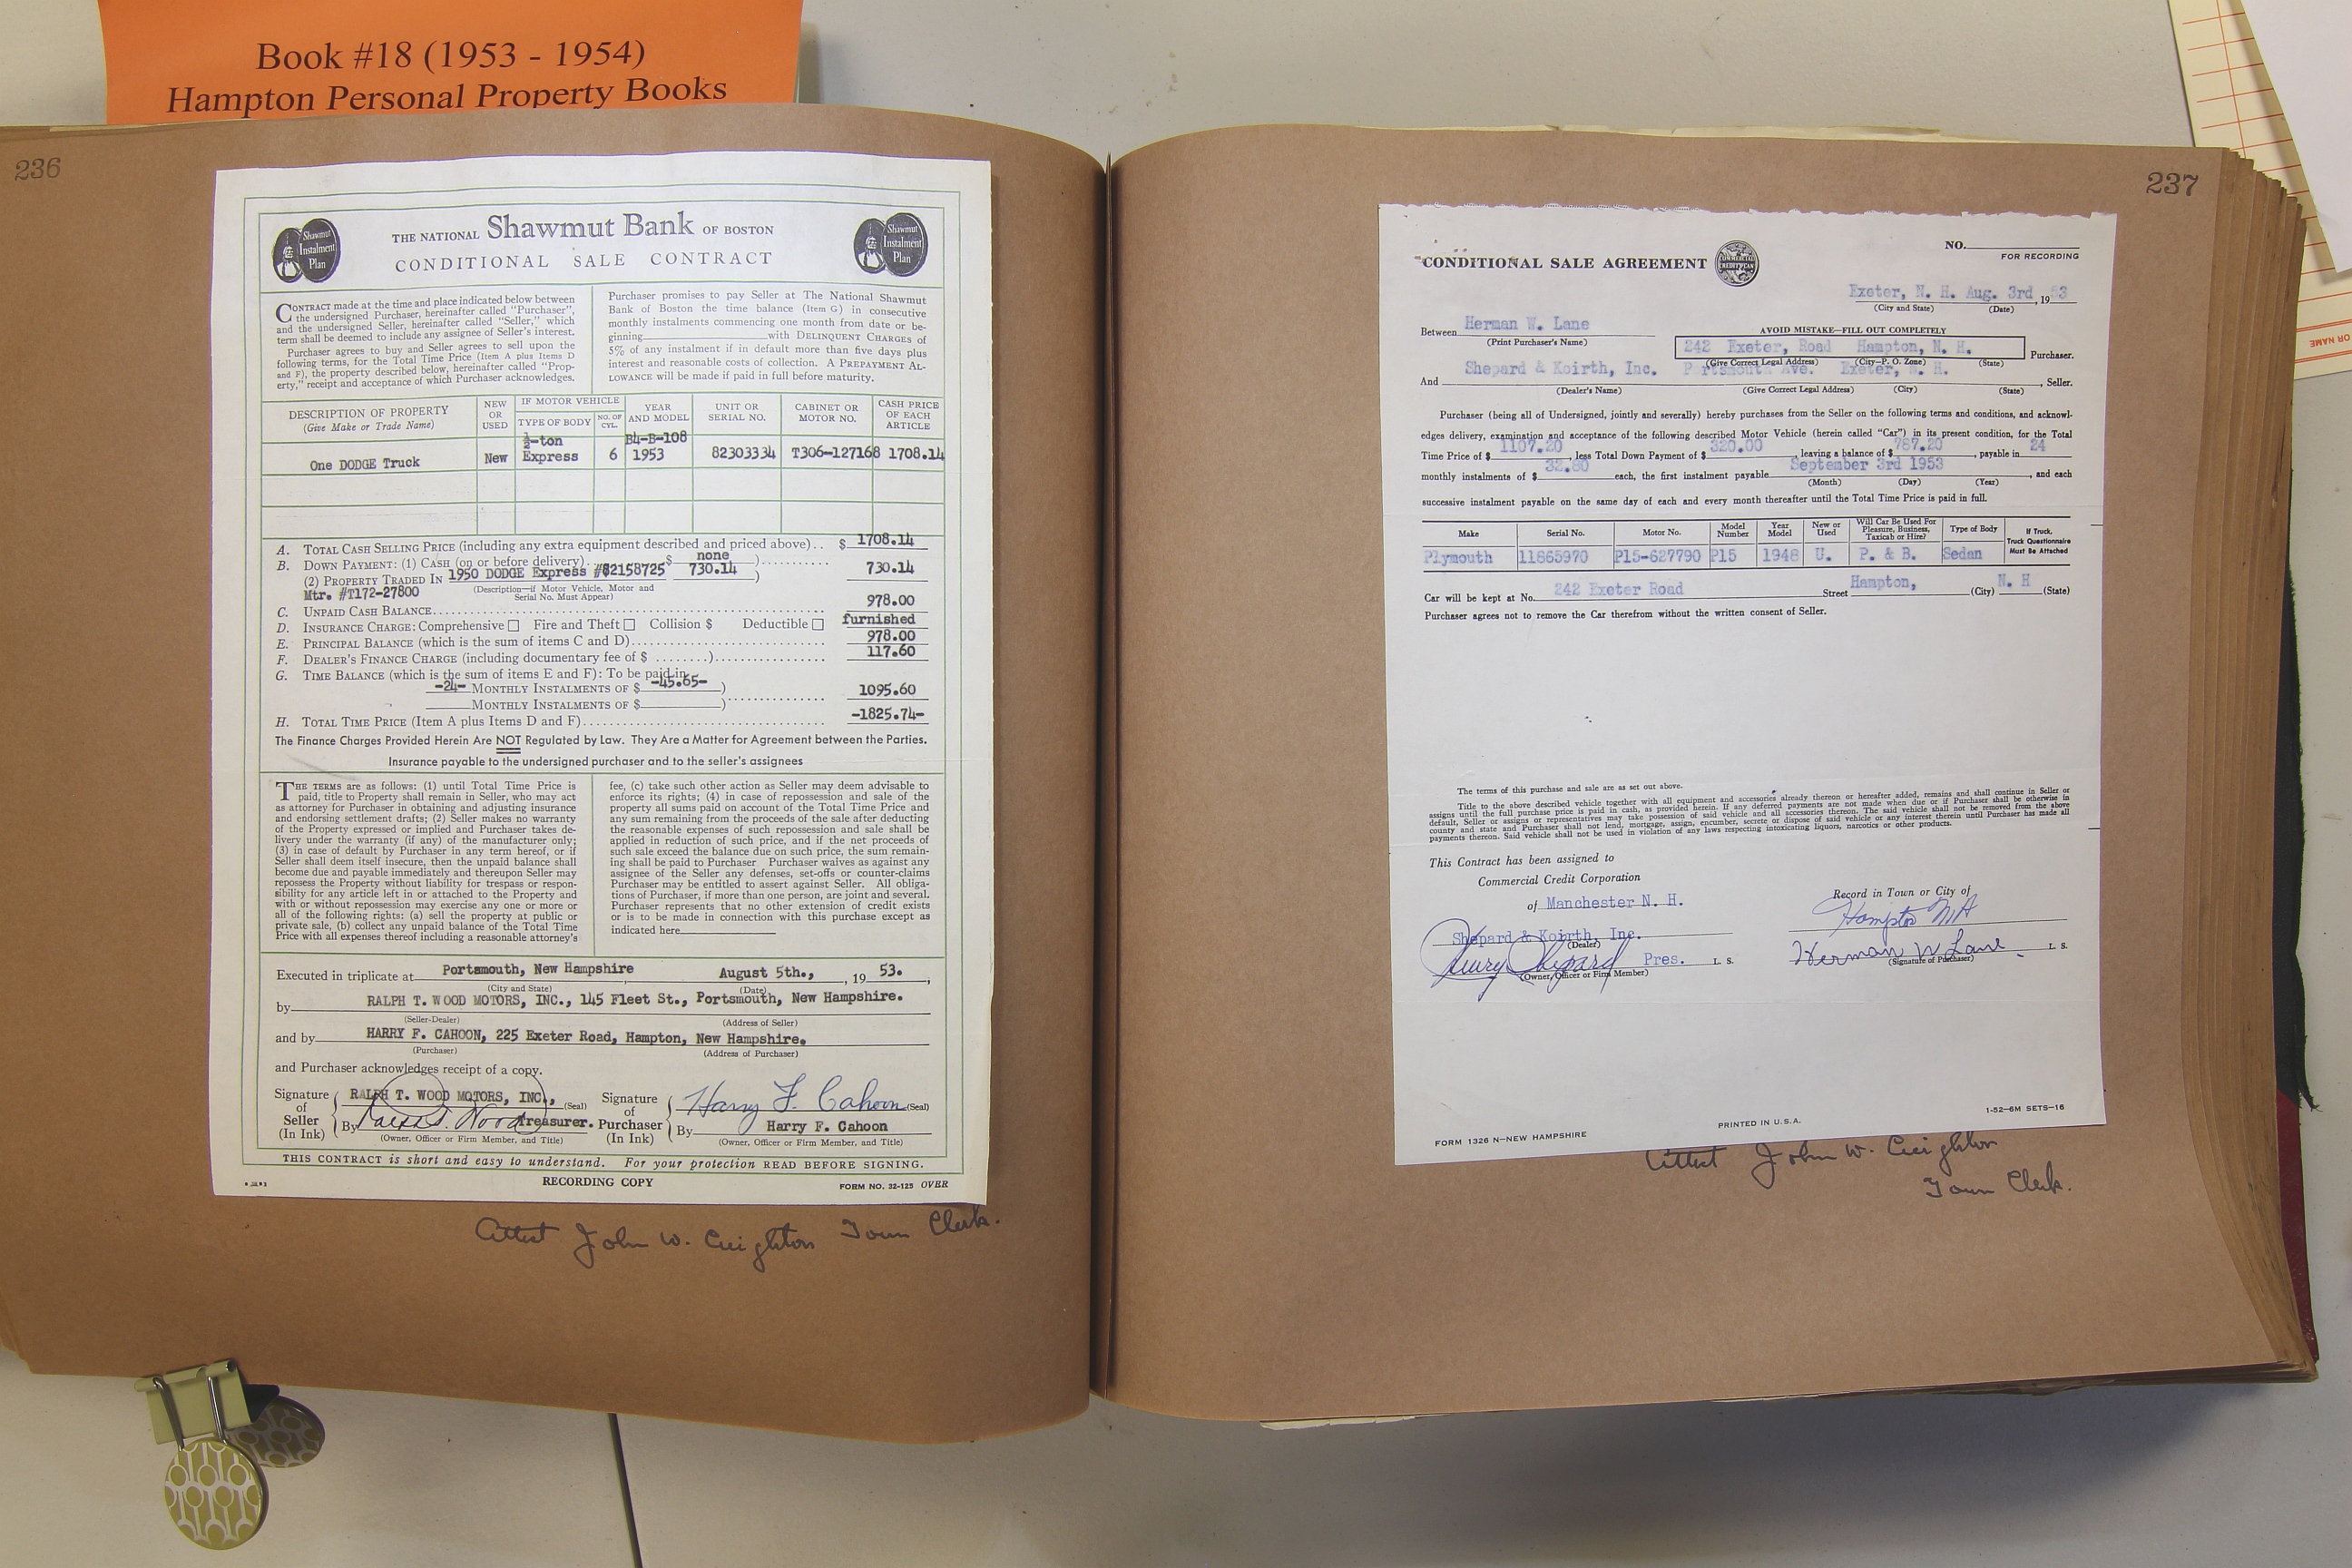 Book #18 (1953 - 1954)
Hampton Personal Property Books
236
Shawmut
Instalment
Plan
THE NATIONAL Shawmut Bank OF BOSTON
CONDITIONAL SALE CONTRACT
Shawmut
Instalment
Plan
CONTRACT made at the time and place indicated below between
the undersigned Purchaser, hereinafter called "Purchaser",
and the undersigned Seller, hereinafter called "Seller," which
term shall be deemed to include any assignee of Seller's interest.
Purchaser agrees to buy and Seller agrees to sell upon the
following terms, for the Total Time Price (Item A plus Items D
and F), the property described below, hereinafter called "Prop-
erty," receipt and acceptance of which Purchaser acknowledges.
Purchaser promises to pay Seller at The National Shawmut
Bank of Boston the time balance (Item G) in consecutive
monthly instalments commencing one month from date or be-
ginning with DELINQUENT CHARGES of
5% of any instalment if in default more than five days plus
interest and reasonable costs of collection. A PREPAYMENT AL-
LOWANCE will be made if paid in full before maturity.
DESCRIPTION OF PROPERTY
(Give Make or Trade Name)
NEW
OR
USED
IF MOTOR VEHICLE
TYPE OF BODY
NO. OF
CYL.
YEAR
AND MODEL
UNIT OR
SERIAL NO.
CABINET OR
MOTOR NO.
CASH PRICE
OF EACH
ARTICLE
½-ton B4-B-108
One DODGE Truck New Express 6 1953 82303334 T306-127168 1708.14
A. TOTAL CASH SELLING PRICE (including any extra equipment described and priced above).. $ 1708.14
B. DOWN PAYMENT: (1) CASH (on or before delivery). $ none )
(2) PROPERTY TRADED IN 1950 DODGE Express #82158725 730.14 ) 730.14
Mtr. #T172-27800 (Description—if Motor Vehicle, Motor and
Serial No. Must Appear)
C. UNPAID CASH BALANCE 978.00
D. INSURANCE CHARGE: Comprehensive Fire and Theft Collision $ Deductible furnished
E. PRINCIPAL BALANCE (which is the sum of items C and D) 978.00
F. DEALER'S FINANCE CHARGE (including documentary fee of $ ........) 117.60
G. TIME BALANCE (which is the sum of items E and F): To be paid in
-24- MONTHLY INSTALMENTS OF $ -45.65- ) 1095.60
MONTHLY INSTALMENTS OF $ )
H. TOTAL TIME PRICE (Item A plus Items D and F) -1825.74-
The Finance Charges Provided Herein Are NOT Regulated by Law. They Are a Matter for Agreement between the Parties.
Insurance payable to the undersigned purchaser and to the seller's assignees
THE TERMS are as follows: (1) until Total Time Price is
paid, title to Property shall remain in Seller, who may act
as attorney for Purchaser in obtaining and adjusting insurance
and endorsing settlement drafts; (2) Seller makes no warranty
of the Property expressed or implied and Purchaser takes de-
livery under the warranty (if any) of the manufacturer only;
(3) in case of default by Purchaser in any term hereof, or if
Seller shall deem itself insecure, then the unpaid balance shall
become due and payable immediately and thereupon Seller may
repossess the Property without liability for trespass or respon-
sibility for any article left in or attached to the Property and
with or without repossession may exercise any one or more or
all of the following rights: (a) sell the property at public or
private sale, (b) collect any unpaid balance of the Total Time
Price with all expenses thereof including a reasonable attorney's
fee, (c) take such other action as Seller may deem advisable to
enforce its rights; (4) in case of repossession and sale of the
property all sums paid on account of the Total Time Price and
any sum remaining from the proceeds of the sale after deducting
the reasonable expenses of such repossession and sale shall be
applied in reduction of such price, and if the net proceeds of
such sale exceed the balance due on such price, the sum remain-
ing shall be paid to Purchaser Purchaser waives as against any
assignee of the Seller any defenses, set-offs or counter-claims
Purchaser may be entitled to assert against Seller. All obliga-
tions of Purchaser, if more than one person, are joint and several.
Purchaser represents that no other extension of credit exists
or is to be made in connection with this purchase except as
indicated here
Executed in triplicate at Portsmouth, New Hampshire August 5th., , 19 53. ,
(City and State) (Date)
by RALPH T. WOOD MOTORS, INC., 145 Fleet St., Portsmouth, New Hampshire.
(Seller-Dealer) (Address of Seller)
and by HARRY F. CAHOON, 225 Exeter Road, Hampton, New Hampshire.
(Purchaser) (Address of Purchaser)
and Purchaser acknowledges receipt of a copy.
Signature
of
Seller
(In Ink)
RALPH T. WOOD MOTORS, INC., (Seal)
By Ralph T. Wood Treasurer.
(Owner, Officer or Firm Member, and Title)
Signature
of
Purchaser
(In Ink)
Harry F. Cahoon (Seal)
By Harry F. Cahoon
(Owner, Officer or Firm Member, and Title)
THIS CONTRACT is short and easy to understand. For your protection READ BEFORE SIGNING.
RECORDING COPY FORM NO. 32-125 OVER
Attest John W. Creighton Town Clerk.
237
CONDITIONAL SALE AGREEMENT
COMMERCIAL
CREDIT
NO.
FOR RECORDING
Exeter, N. H. Aug. 3rd , 19 53
(City and State) (Date)
Between Herman W. Lane
(Print Purchaser's Name)
AVOID MISTAKE—FILL OUT COMPLETELY
242 Exeter, Road Hampton, N. H. Purchaser.
(Give Correct Legal Address) (City—P. O. Zone) (State)
And Shepard & Koirth, Inc. Portsmouth Ave. Exeter, N. H. , Seller.
(Dealer's Name) (Give Correct Legal Address) (City) (State)
Purchaser (being all of Undersigned, jointly and severally) hereby purchases from the Seller on the following terms and conditions, and acknowl-
edges delivery, examination and acceptance of the following described Motor Vehicle (herein called "Car") in its present condition, for the Total
Time Price of $ 1107.20 , less Total Down Payment of $ 320.00 , leaving a balance of $ 787.20 , payable in 24
monthly instalments of $ 32.80 each, the first instalment payable September 3rd 1953 , and each
(Month) (Day) (Year)
successive instalment payable on the same day of each and every month thereafter until the Total Time Price is paid in full.
Make
Serial No.
Motor No.
Model
Number
Year
Model
New or
Used
Will Car Be Used For
Pleasure, Business,
Taxicab or Hire?
Type of Body
If Truck,
Truck Questionnaire
Must Be Attached
Plymouth 11865970 P15-627790 P15 1948 U. P. & B. Sedan
Car will be kept at No. 242 Exeter Road Street Hampton, (City) N. H (State)
Purchaser agrees not to remove the Car therefrom without the written consent of Seller.
The terms of this purchase and sale are as set out above.
Title to the above described vehicle together with all equipment and accessories already thereon or hereafter added, remains and shall continue in Seller or
assigns until the full purchase price is paid in cash, as provided herein. If any deferred payments are not made when due or if Purchaser shall be otherwise in
default, Seller or assigns or representatives may take possession of said vehicle and all accessories thereon. The said vehicle shall not be removed from the above
county and state and Purchaser shall not lend, mortgage, assign, encumber, secrete or dispose of said vehicle or any interest therein until Purchaser has made all
payments thereon. Said vehicle shall not be used in violation of any laws respecting intoxicating liquors, narcotics or other products.
This Contract has been assigned to
Commercial Credit Corporation
of Manchester N. H.
Record in Town or City of
Hampton NH
Shepard & Koirth, Inc.
(Dealer)
Henry Shepard Pres. L. S.
(Owner, Officer or Firm Member)
Herman W Lane L. S.
(Signature of Purchaser)
1-52—6M SETS—16
PRINTED IN U.S.A.
FORM 1326 N—NEW HAMPSHIRE
Attest John W. Creighton
Town Clerk.
OR NAME